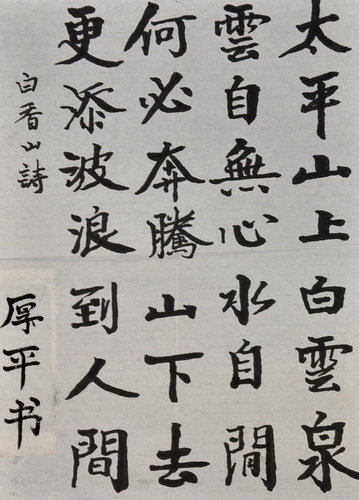 太平山上白雲泉
雲自無心水自閒
何必奔騰山下去
更添波浪到人間
白香山詩
厚平书